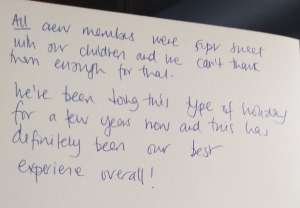 All crew members were super sweet
with our children and we can't thank
them enough for that.
We've been doing this type of holiday
for a few years now and this has
definitely been our best
experience overall!